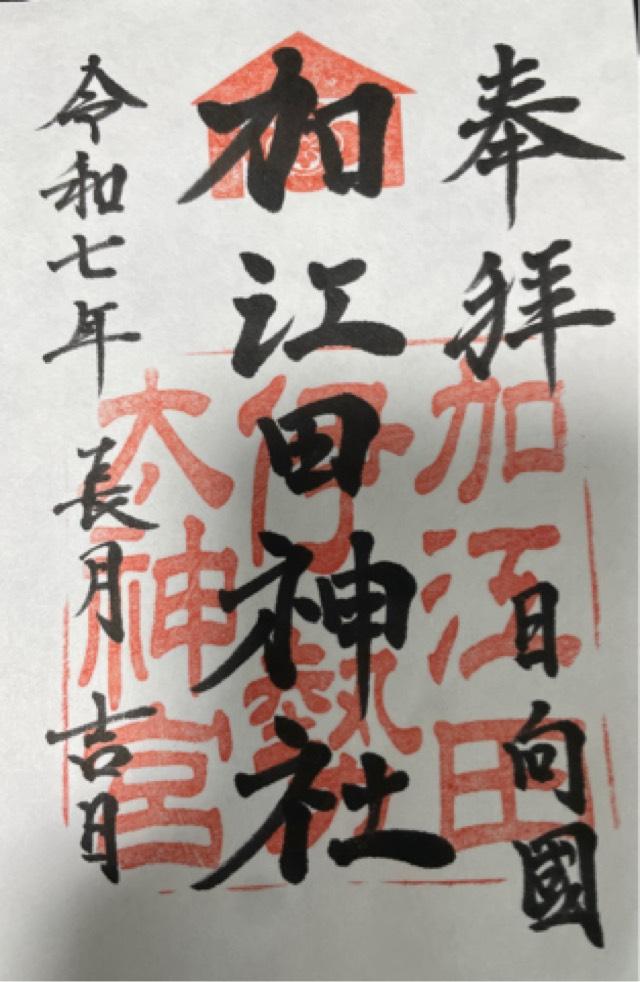 奉拝
日向國
加江田神社
令和七年 長月 吉日
加江田
伊勢
太神宮